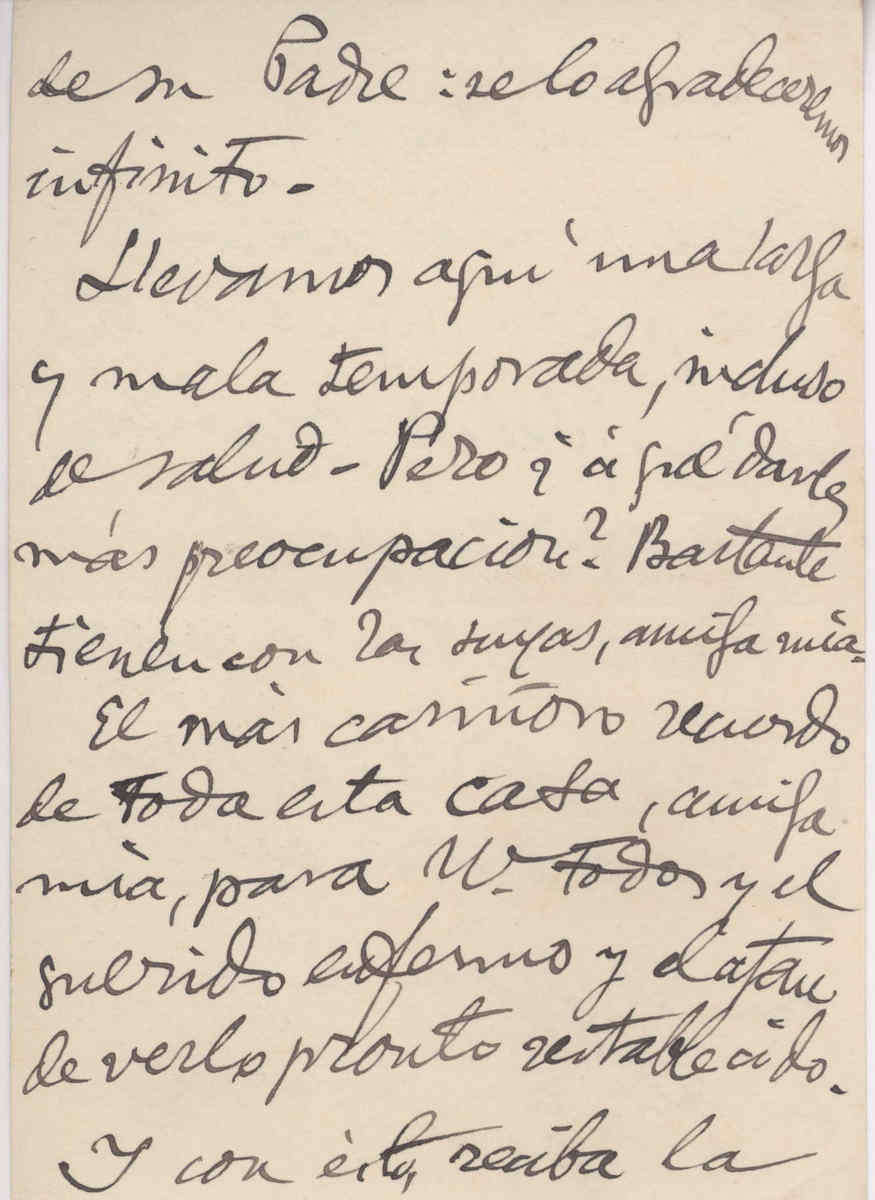 de su Padre: se lo agradeceremos
infinito -
Llevamos aquí una larga
y mala temporada, incluso
de salud - Pero ¿a qué darles
más preocupacion? Bastante
tienen con las suyas, amiga mia -
El más cariñoso recuerdo
de toda esta casa, amiga
mia, para Vv. Todos y el
querido enfermo y el afan
de verlo pronto restablecido.
Y con ésto, reciba la